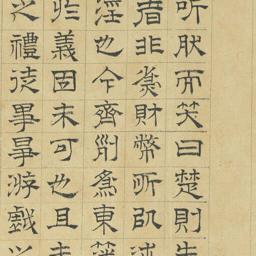 听肰而笑曰楚則失
者非為財幣所以述
淫也今齊列為東藩
於義固未可也且
之禮徒事爭游戲